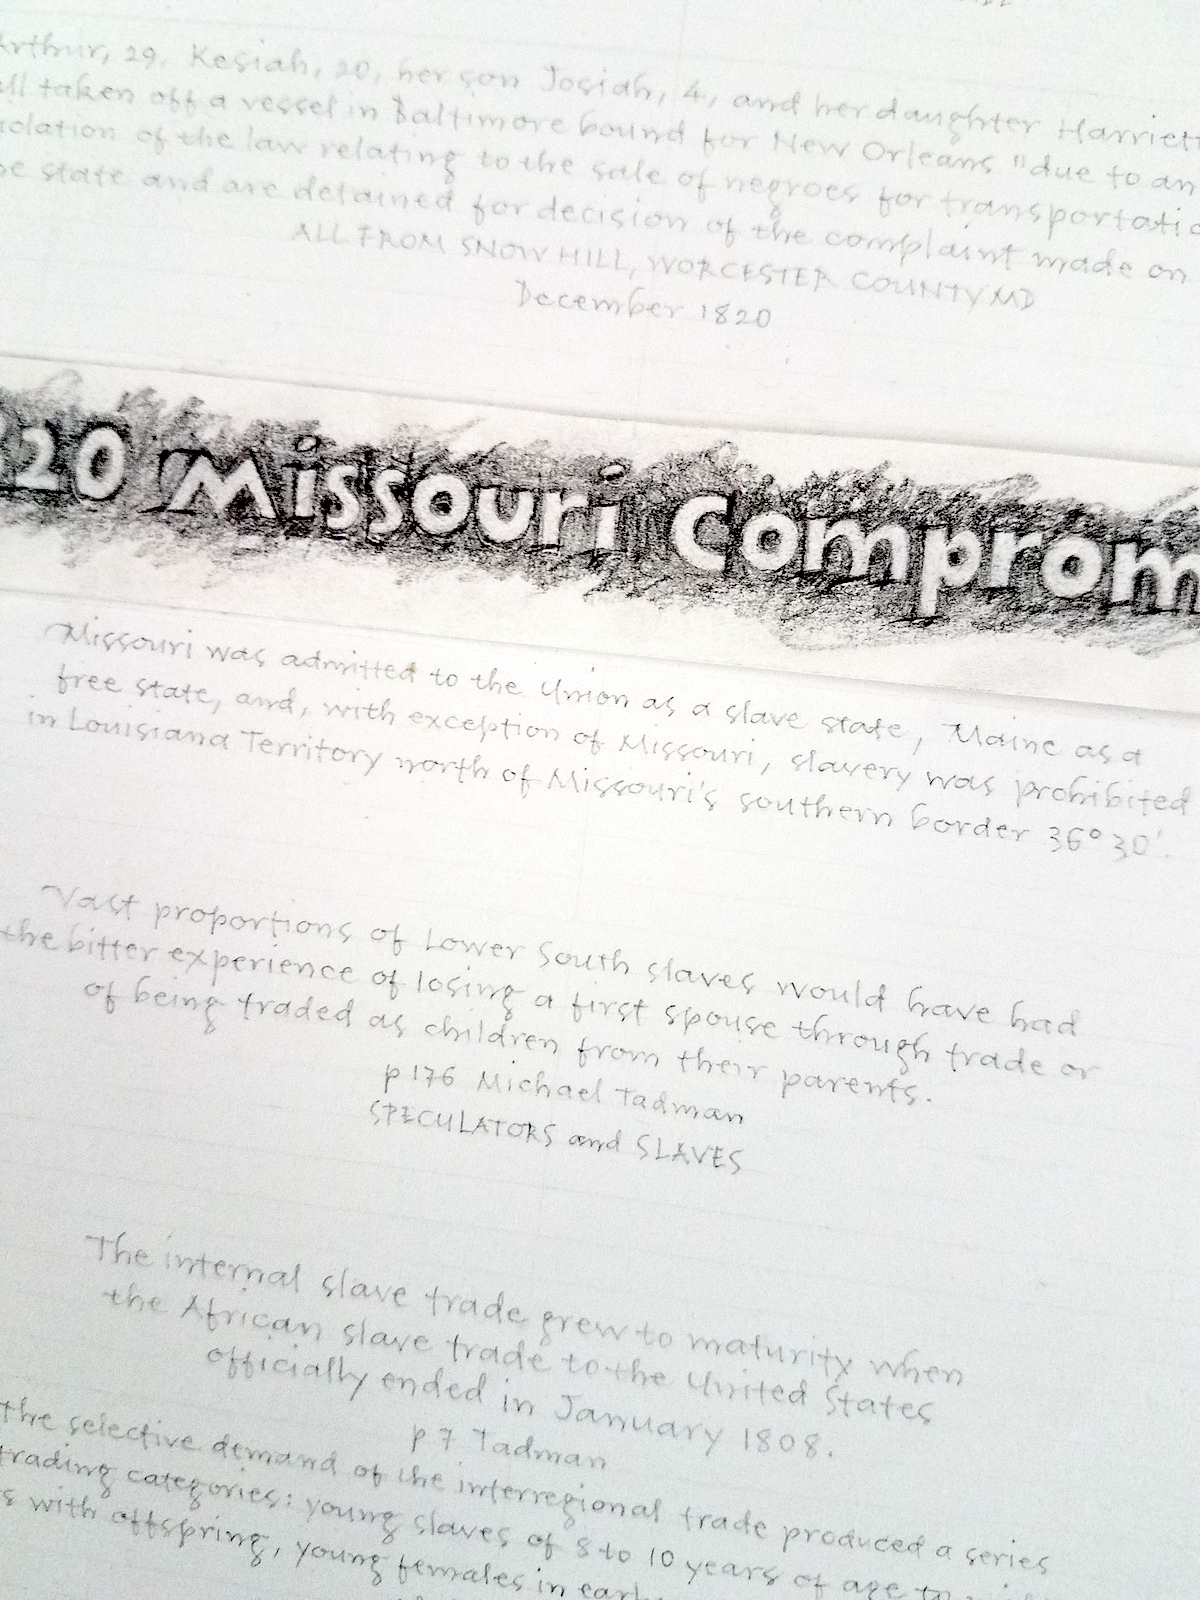 Arthur, 29, Kesiah, 20, her son Josiah, 4, and her daughter Harriett
all taken off a vessel in Baltimore bound for New Orleans "due to an
violation of the law relating to the sale of negroes for transportatio
he state and are detained for decision of the complaint made on
ALL FROM SNOW HILL, WORCESTER COUNTY MD
December 1820
820 Missouri Comprom
Missouri was admitted to the Union as a slave state, Maine as a
free state, and, with exception of Missouri, slavery was prohibited
in Louisiana Territory north of Missouri's southern border 36° 30'.
Vast proportions of Lower South slaves would have had
the bitter experience of losing a first spouse through trade or
of being traded as children from their parents.
p 176 Michael Tadman
SPECULATORS and SLAVES
The internal slave trade grew to maturity when
the African slave trade to the United States
officially ended in January 1808.
p 7 Tadman
the selective demand of the interregional trade produced a series
trading categories: young slaves of 8 to 10 years of age to
s with offspring, young females in earl